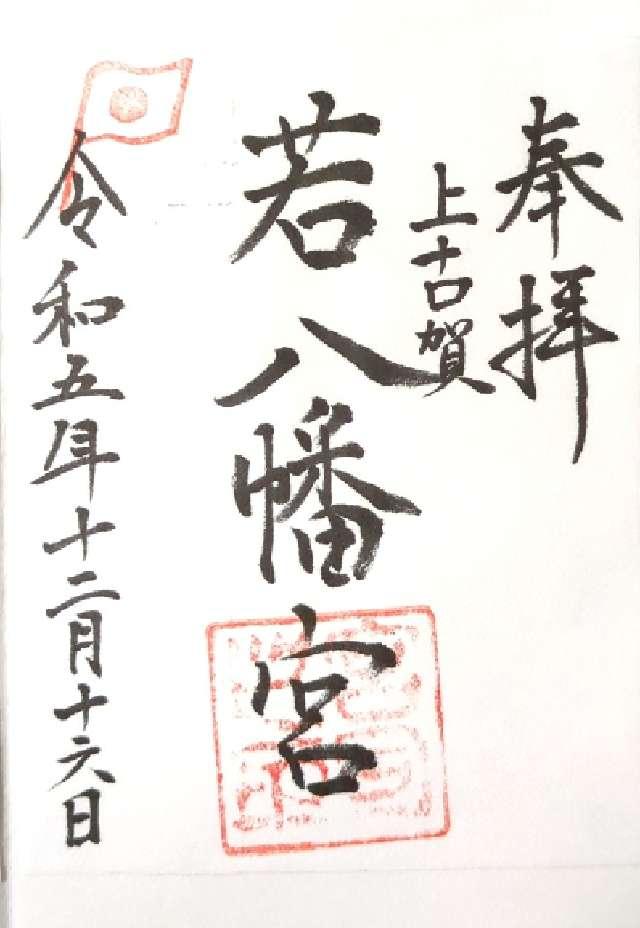 奉拝
上古賀
若八幡宮
令和五年十二月十六日